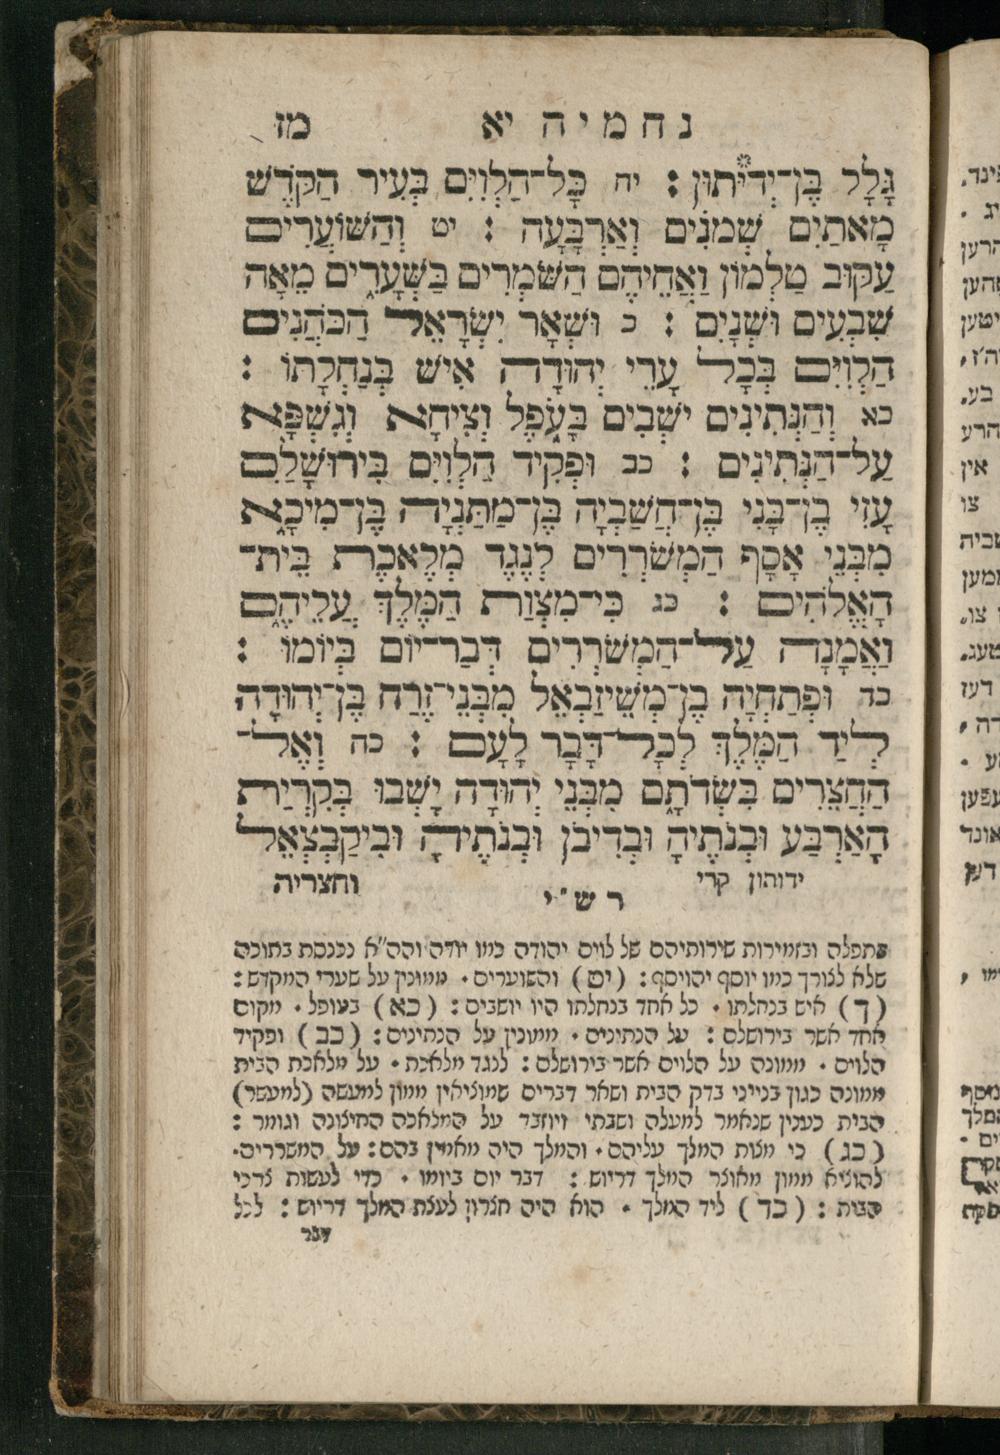 נחמיה יא מז
גָּלָל בֶּן־יְדִיּתוּן׃ יח כָּל־הַלְוִיִּם בְּעִיר הַקֹּדֶשׁ
מָאתַיִם שְׁמֹנִים וְאַרְבָּעָה׃ יט וְהַשּׁוֹעֲרִים
עַקּוּב טַלְמוֹן וַאֲחֵיהֶם הַשֹּׁמְרִים בַּשְּׁעָרִים מֵאָה
שִׁבְעִים וּשְׁנָיִם׃ כ וּשְׁאָר יִשְׂרָאֵל הַכֹּהֲנִים
הַלְוִיִּם בְּכָל עָרֵי יְהוּדָה אִישׁ בְּנַחֲלָתוֹ׃
כא וְהַנְּתִינִים יֹשְׁבִים בָּעֹפֶל וְצִיחָא וְגִשְׁפָּא
עַל־הַנְּתִינִים׃ כב וּפְקִיד הַלְוִיִּם בִּירוּשָׁלִַם
עֻזִּי בֶן־בָּנִי בֶּן־חֲשַׁבְיָה בֶּן־מַתַּנְיָה בֶּן־מִיכָא
מִבְּנֵי אָסָף הַמְשֹׁרְרִים לְנֶגֶד מְלֶאכֶת בֵּית־
הָאֱלֹהִים׃ כג כִּי־מִצְוַת הַמֶּלֶךְ עֲלֵיהֶם
וַאֲמָנָה עַל־הַמְשֹׁרְרִים דְּבַר־יוֹם בְּיוֹמוֹ׃
כד וּפְתַחְיָה בֶן־מְשֵׁיזַבְאֵל מִבְּנֵי־זֶרַח בֶּן־יְהוּדָה
לְיַד הַמֶּלֶךְ לְכָל־דָּבָר לָעָם׃ כה וְאֶל־
הַחֲצֵרִים בִּשְׂדֹתָם מִבְּנֵי יְהוּדָה יָשְׁבוּ בְּקִרְיַת
הָאַרְבַּע וּבְנֹתֶיהָ וּבְדִיבֹן וּבְנֹתֶיהָ וּבִיקַבְצְאֵל
ידותון קרי וחצריה
רש"י
בתפלה ובזמירות שירותיהם של לוים יהודה כמו יודה והה"א נכנסת בתוכה
שלא לצורך כמו יוסף יהויסף: (יט) והשוערים. ממונין על שערי המקדש:
(ך) איש בנחלתו. כל אחד בנחלתו היו יושבים: (כא) בעופל. מקום
אחד אשר בירושלם: על הנתינים. ממונין על הנתינים: (כב) ופקיד
הלוים. ממונה על הלוים אשר בירושלם: לנגד מלאכת. על מלאכת הבית
ממונה כגון בנייני בדק הבית ושאר דברים שמוציאין ממון למעשה (למעשר)
הבית כענין שנאמר למעלה ושבתי ויוזבד על המלאכה החיצונה וגומר:
(כג) כי מצות המלך עליהם. והמלך היה מאמין בהם: על המשררים.
להוציא ממון מאוצר המלך דריוש: דבר יום ביומו. כדי לעשות צרכי
הבית: (כד) ליד המלך. הוא היה חגרון לעצת המלך דריוש: לכל
דבר